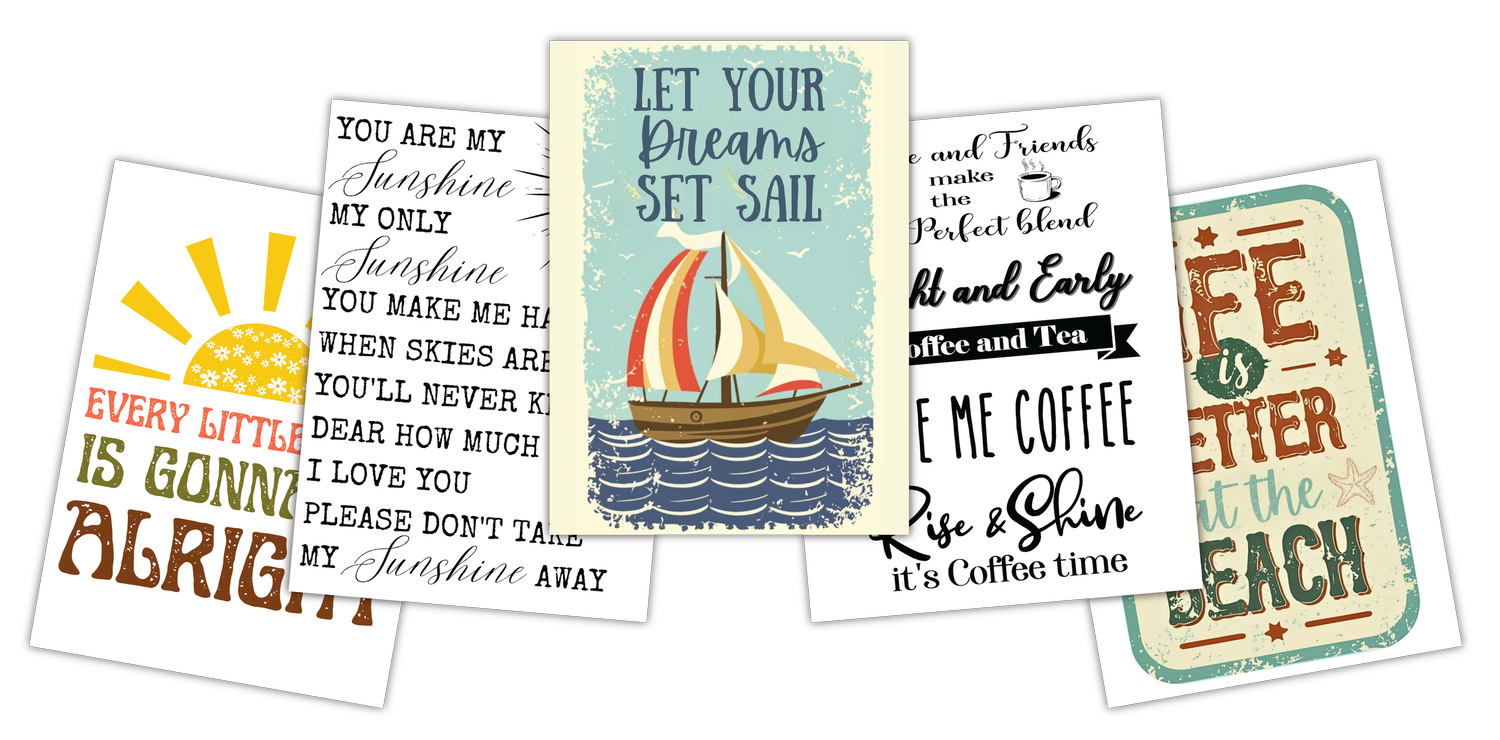 EVERY LITTLE
IS GONNA
ALRIGHT
YOU ARE MY
Sunshine
MY ONLY
Sunshine
YOU MAKE ME HA
WHEN SKIES ARE
YOU'LL NEVER K
DEAR HOW MUCH
I LOVE YOU
PLEASE DON'T TAKE
MY Sunshine AWAY
LET YOUR
Dreams
SET SAIL
e and Friends
make
the
Perfect blend
ht and Early
offee and Tea
E ME COFFEE
Rise & Shine
it's Coffee time
IFE
is
ETTER
at the
BEACH